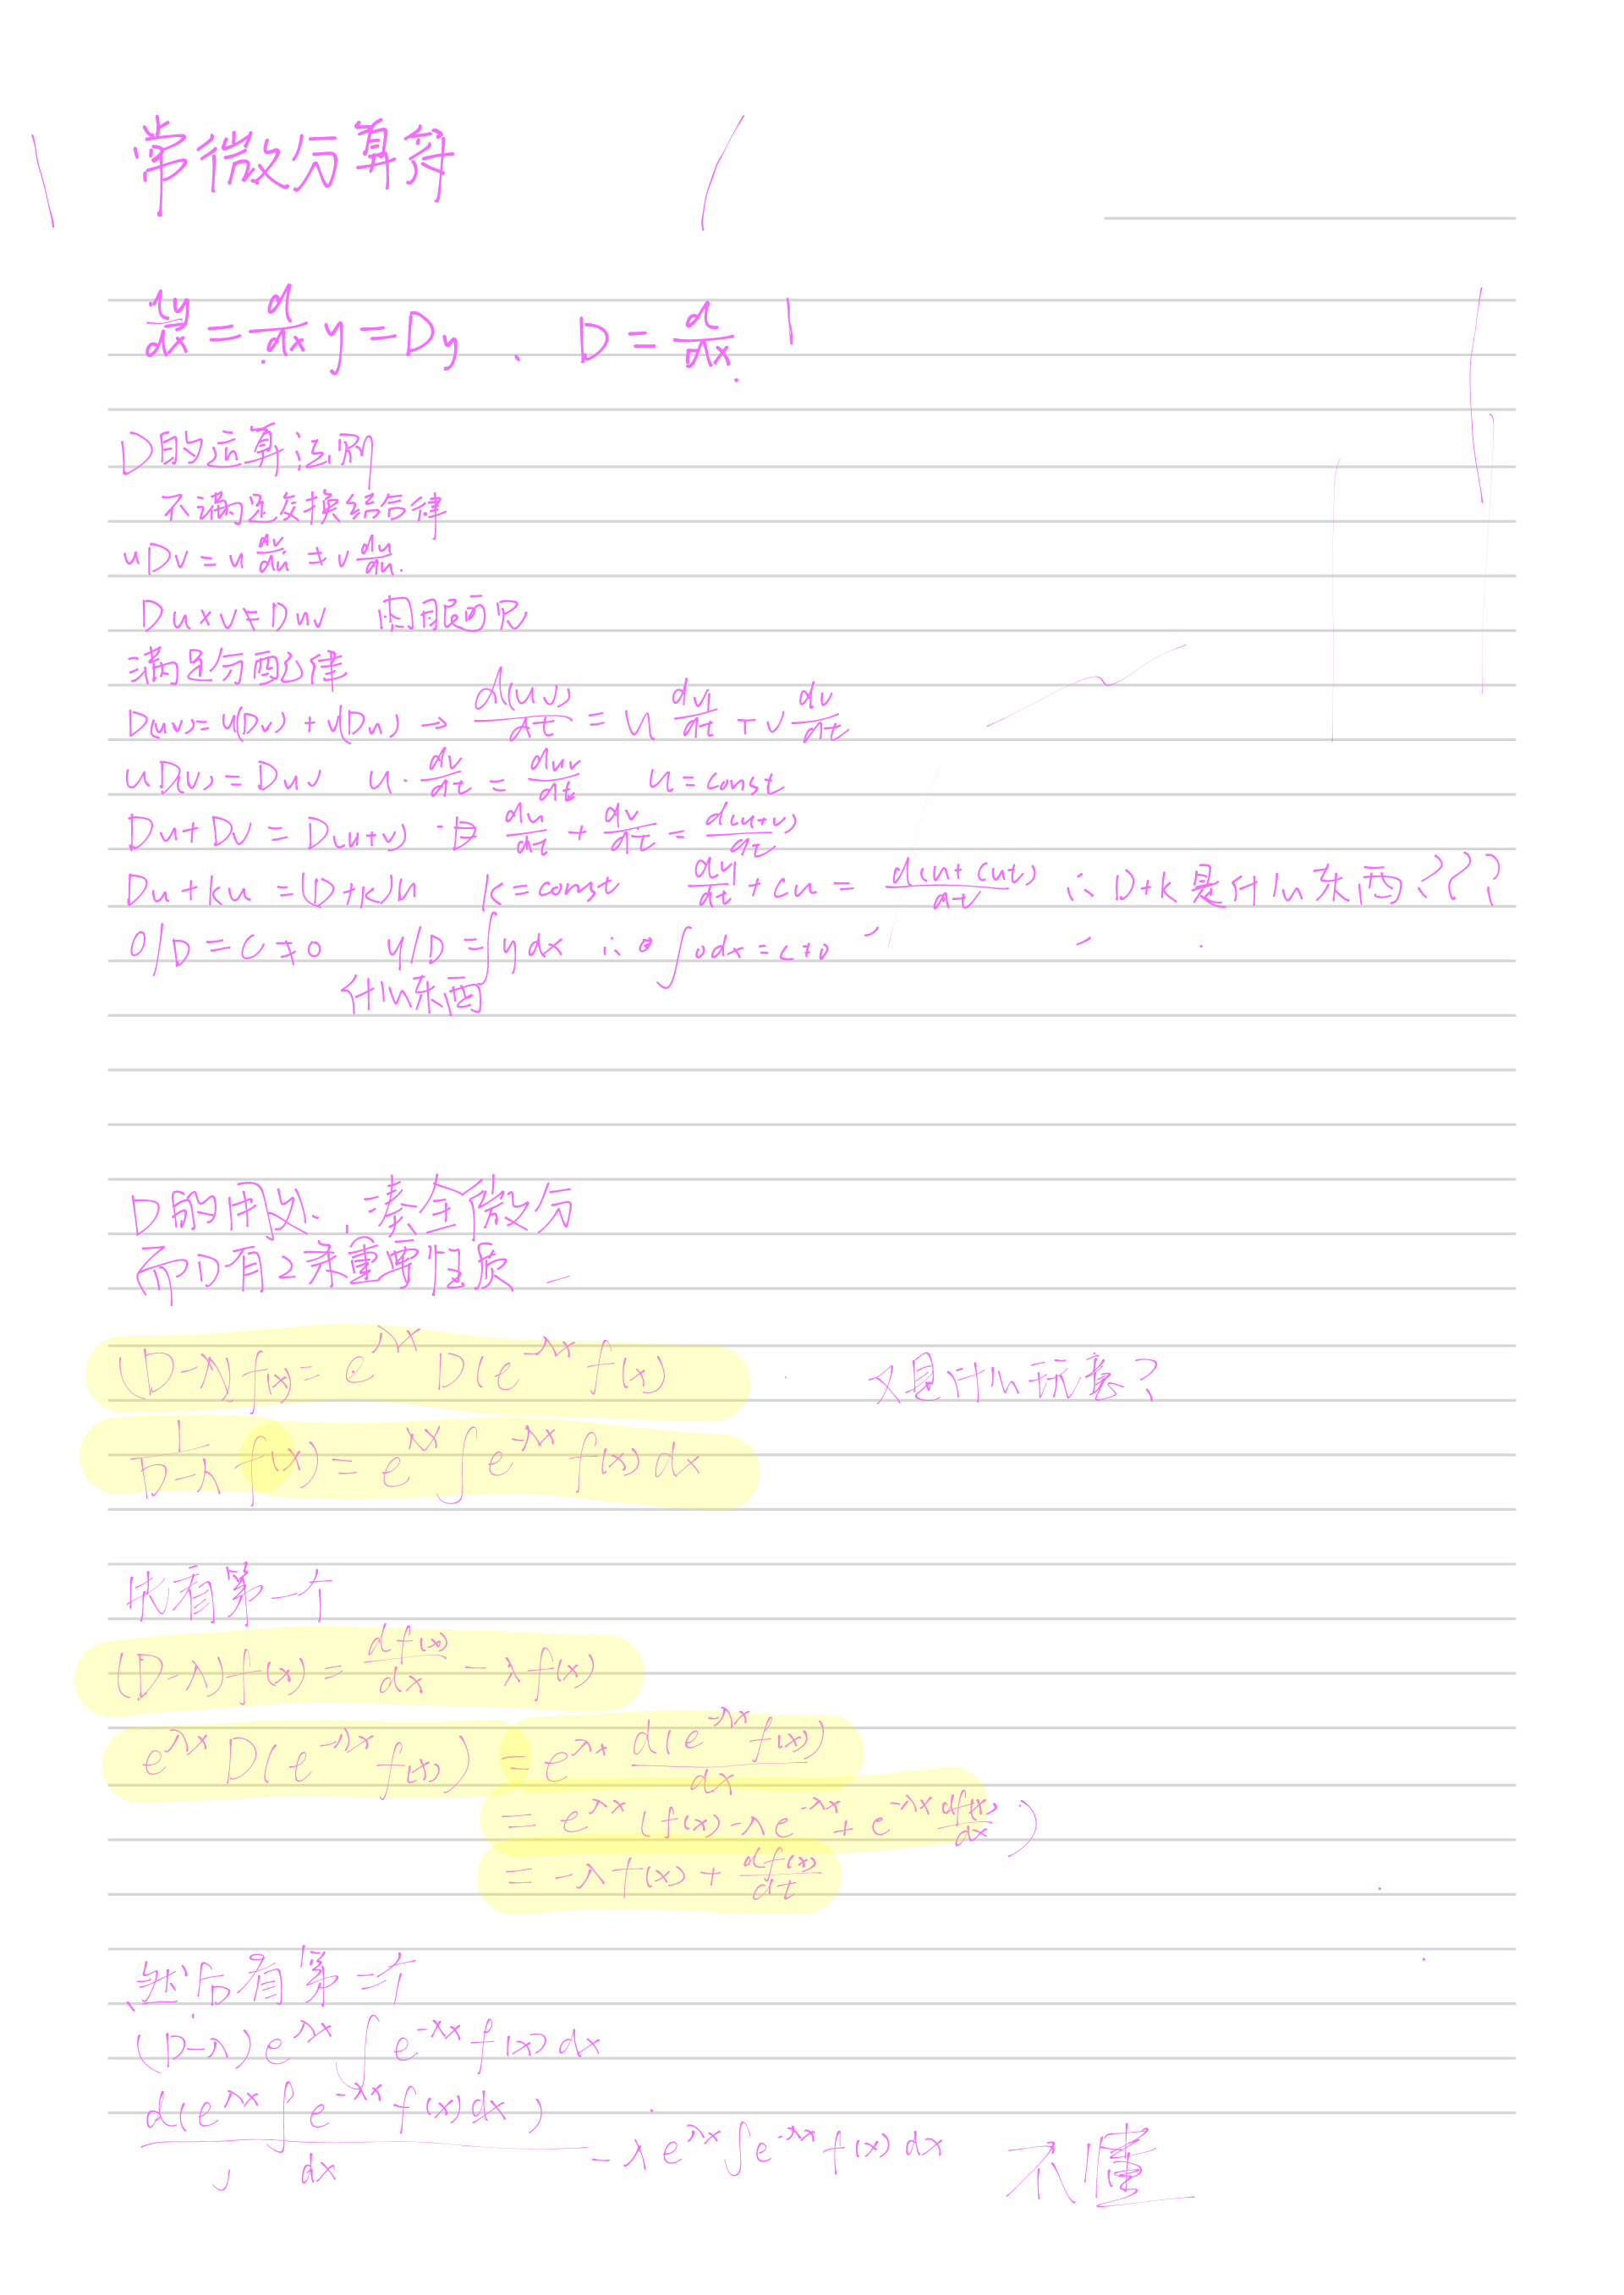 常微分算符
dy/dx = d/dx y = Dy 、 D = d/dx
D的运算法则
不满足交换结合律
uDv = u dv/du ≠ v du/du.
Du×v ≠ Duv 肉眼可见
满足分配律
D(uv) = u(Dv) + v(Du) → d(uv)/dt = u dv/dt + v dv/dt
uD(v) = Duv u · dv/dt = duv/dt u = const
Du + Dv = D(u+v) du/dt + dv/dt = d(u+v)/dt
Du + ku = (D+k)u k = const du/dt + cu = d(u + cut)/dt ∴ D+k 是什么东西???
0/D = C ≠ 0 y/D = ∫y dx ∴ ∫0dx = c ≠ 0
什么东西
D的用处、凑全微分
而D有2条重要性质
(D-λ)f(x) = e^λx D(e^-λx f(x) 又是什么玩意?
1/(D-λ) f(x) = e^λx ∫e^-λx f(x) dx
先看第一个
(D-λ)f(x) = df(x)/dx - λf(x)
e^λx D(e^-λx f(x)) = e^λx d(e^-λx f(x))/dx
= e^λx (f(x) -λe^-λx + e^-λx df(x)/dx)
= -λf(x) + df(x)/dt
然后看第二个
(D-λ)e^λx ∫e^-λx f(x) dx
d(e^λx ∫e^-λx f(x)dx)/dx - λe^λx ∫e^-λx f(x) dx 不懂